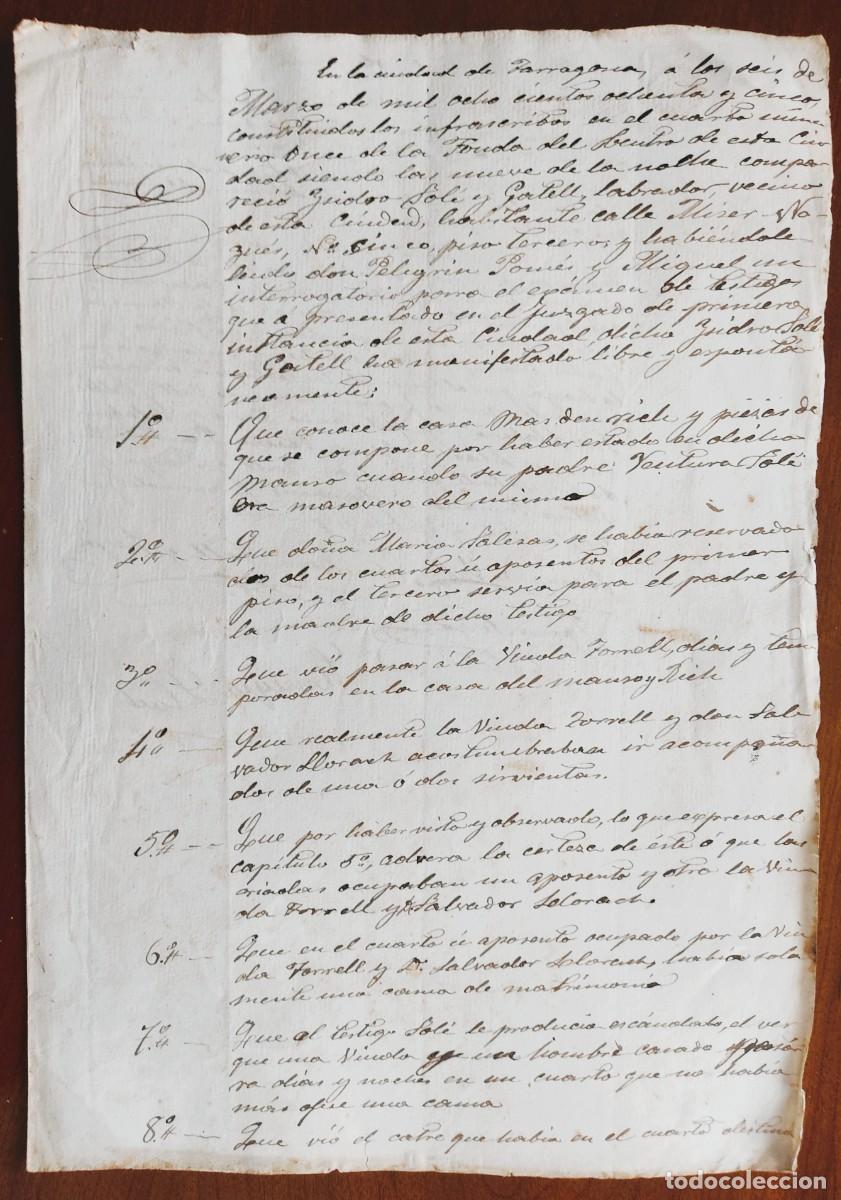 En la ciudad de Tarragona, á los seis de
Marzo de mil ocho cientos ochenta y cinco,
constituidos los infrascritos en el cuarto núm
vero once de la Fonda del Centro de esta Ciu
dad siendo las nueve de la noche compa
reció Ysidro Solé y Gatell, labrador, vecino
de esta Ciudad, habitante calle Miser No-
gués, Nº cinco, piso tercero, y habiéndole
leido don Pelegrin Pomés y Miquel un
interrogatorio para el exámen de testigos
que a presentado en el Juzgado de primera
instancia de esta Ciudad, dicho Ysidro Solé
y Gatell ha manifestado libre y espontá
neamente:
1º -- Que conoce la casa Mas den rich y piezas de
que se compone por haber estado en dicho
manso cuando su padre Ventura Solé
era masovero del mismo
2º -- Que doña Maria Salesas, se habia reservado
dos de los cuartos ú aposentos del primer
piso, y el tercero servia para el padre y
la madre de dicho testigo
3º -- Que vió pasar á la Viuda Torrell, dias y tem
poradas en la casa del manso Rich
4º -- Que realmente la Viuda Torrell y don Sal
vador Llorach acostumbraban ir acompaña
dos de una ó dos sirvientas.
5º -- Que por haber visto y observado, lo que expresa el
capitulo 5º, advera la certeza de éste ó que las
criadas ocupaban un aposento y otro la Viu
da Torrell y Salvador Llorach.
6º -- Que en el cuarto ú aposento ocupado por la Viu
da Torrell y D. Salvador Llorach, habia sola
mente una cama de matrimonio
7º -- Que al testigo Solé le producia escándalo, el ver
que una Viuda y un hombre casado pasá
ra dias y noches en un cuarto que no habia
más que una cama
8º -- Que vió el catre que habia en el cuarto destina
todocoleccion